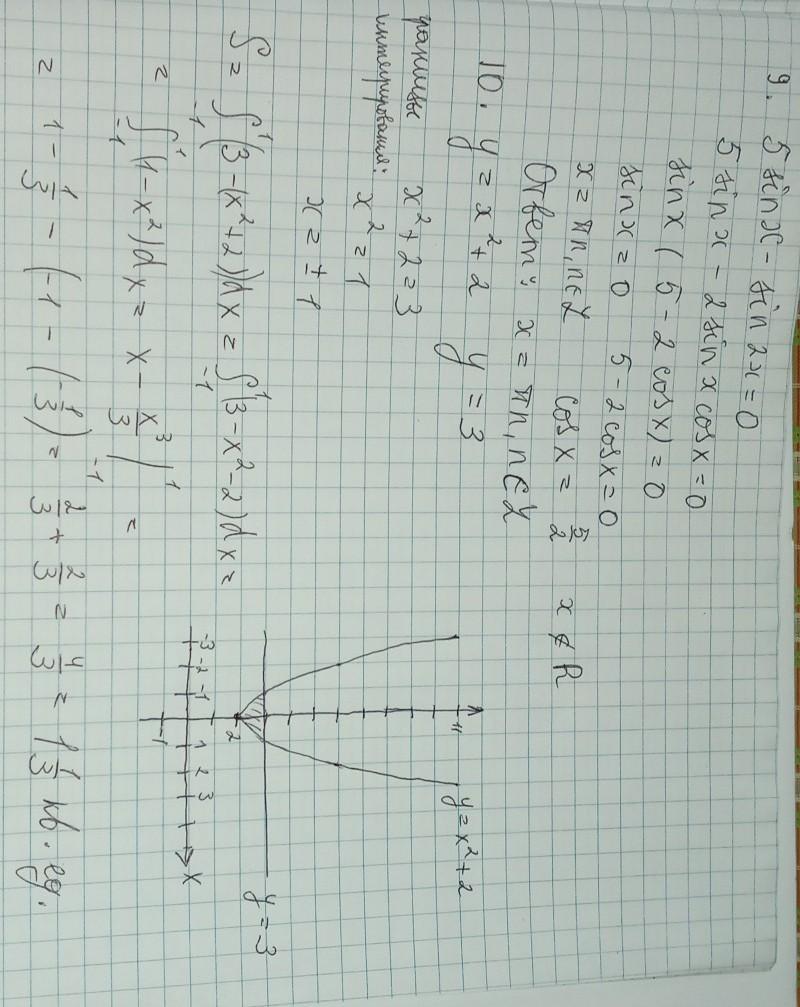 9. 5 sinx - sin2x = 0
5 sinx - 2 sinx cosx = 0
sinx (5 - 2cosx) = 0
sinx = 0 5 - 2cosx = 0
x = πn, n∈Z cosx = 5/2 x∉R
Ответ: x = πn, n∈Z
10. y = x² + 2 y = 3
границы
интегрирования:
x² + 2 = 3
x² = 1
x = ± 1
S = ∫₋₁¹ (3 - (x² + 2))dx = ∫₋₁¹ (3 - x² - 2)dx =
= ∫₋₁¹ (1 - x²)dx = x - x³/3 |₋₁¹ =
= 1 - 1/3 - (-1 - (-1/3)) = 2/3 + 2/3 = 4/3 = 1 1/3 кв. ед.
11
y = x² + 2
y = 3
2
-3 -2 -1 1 2 3 x
-1